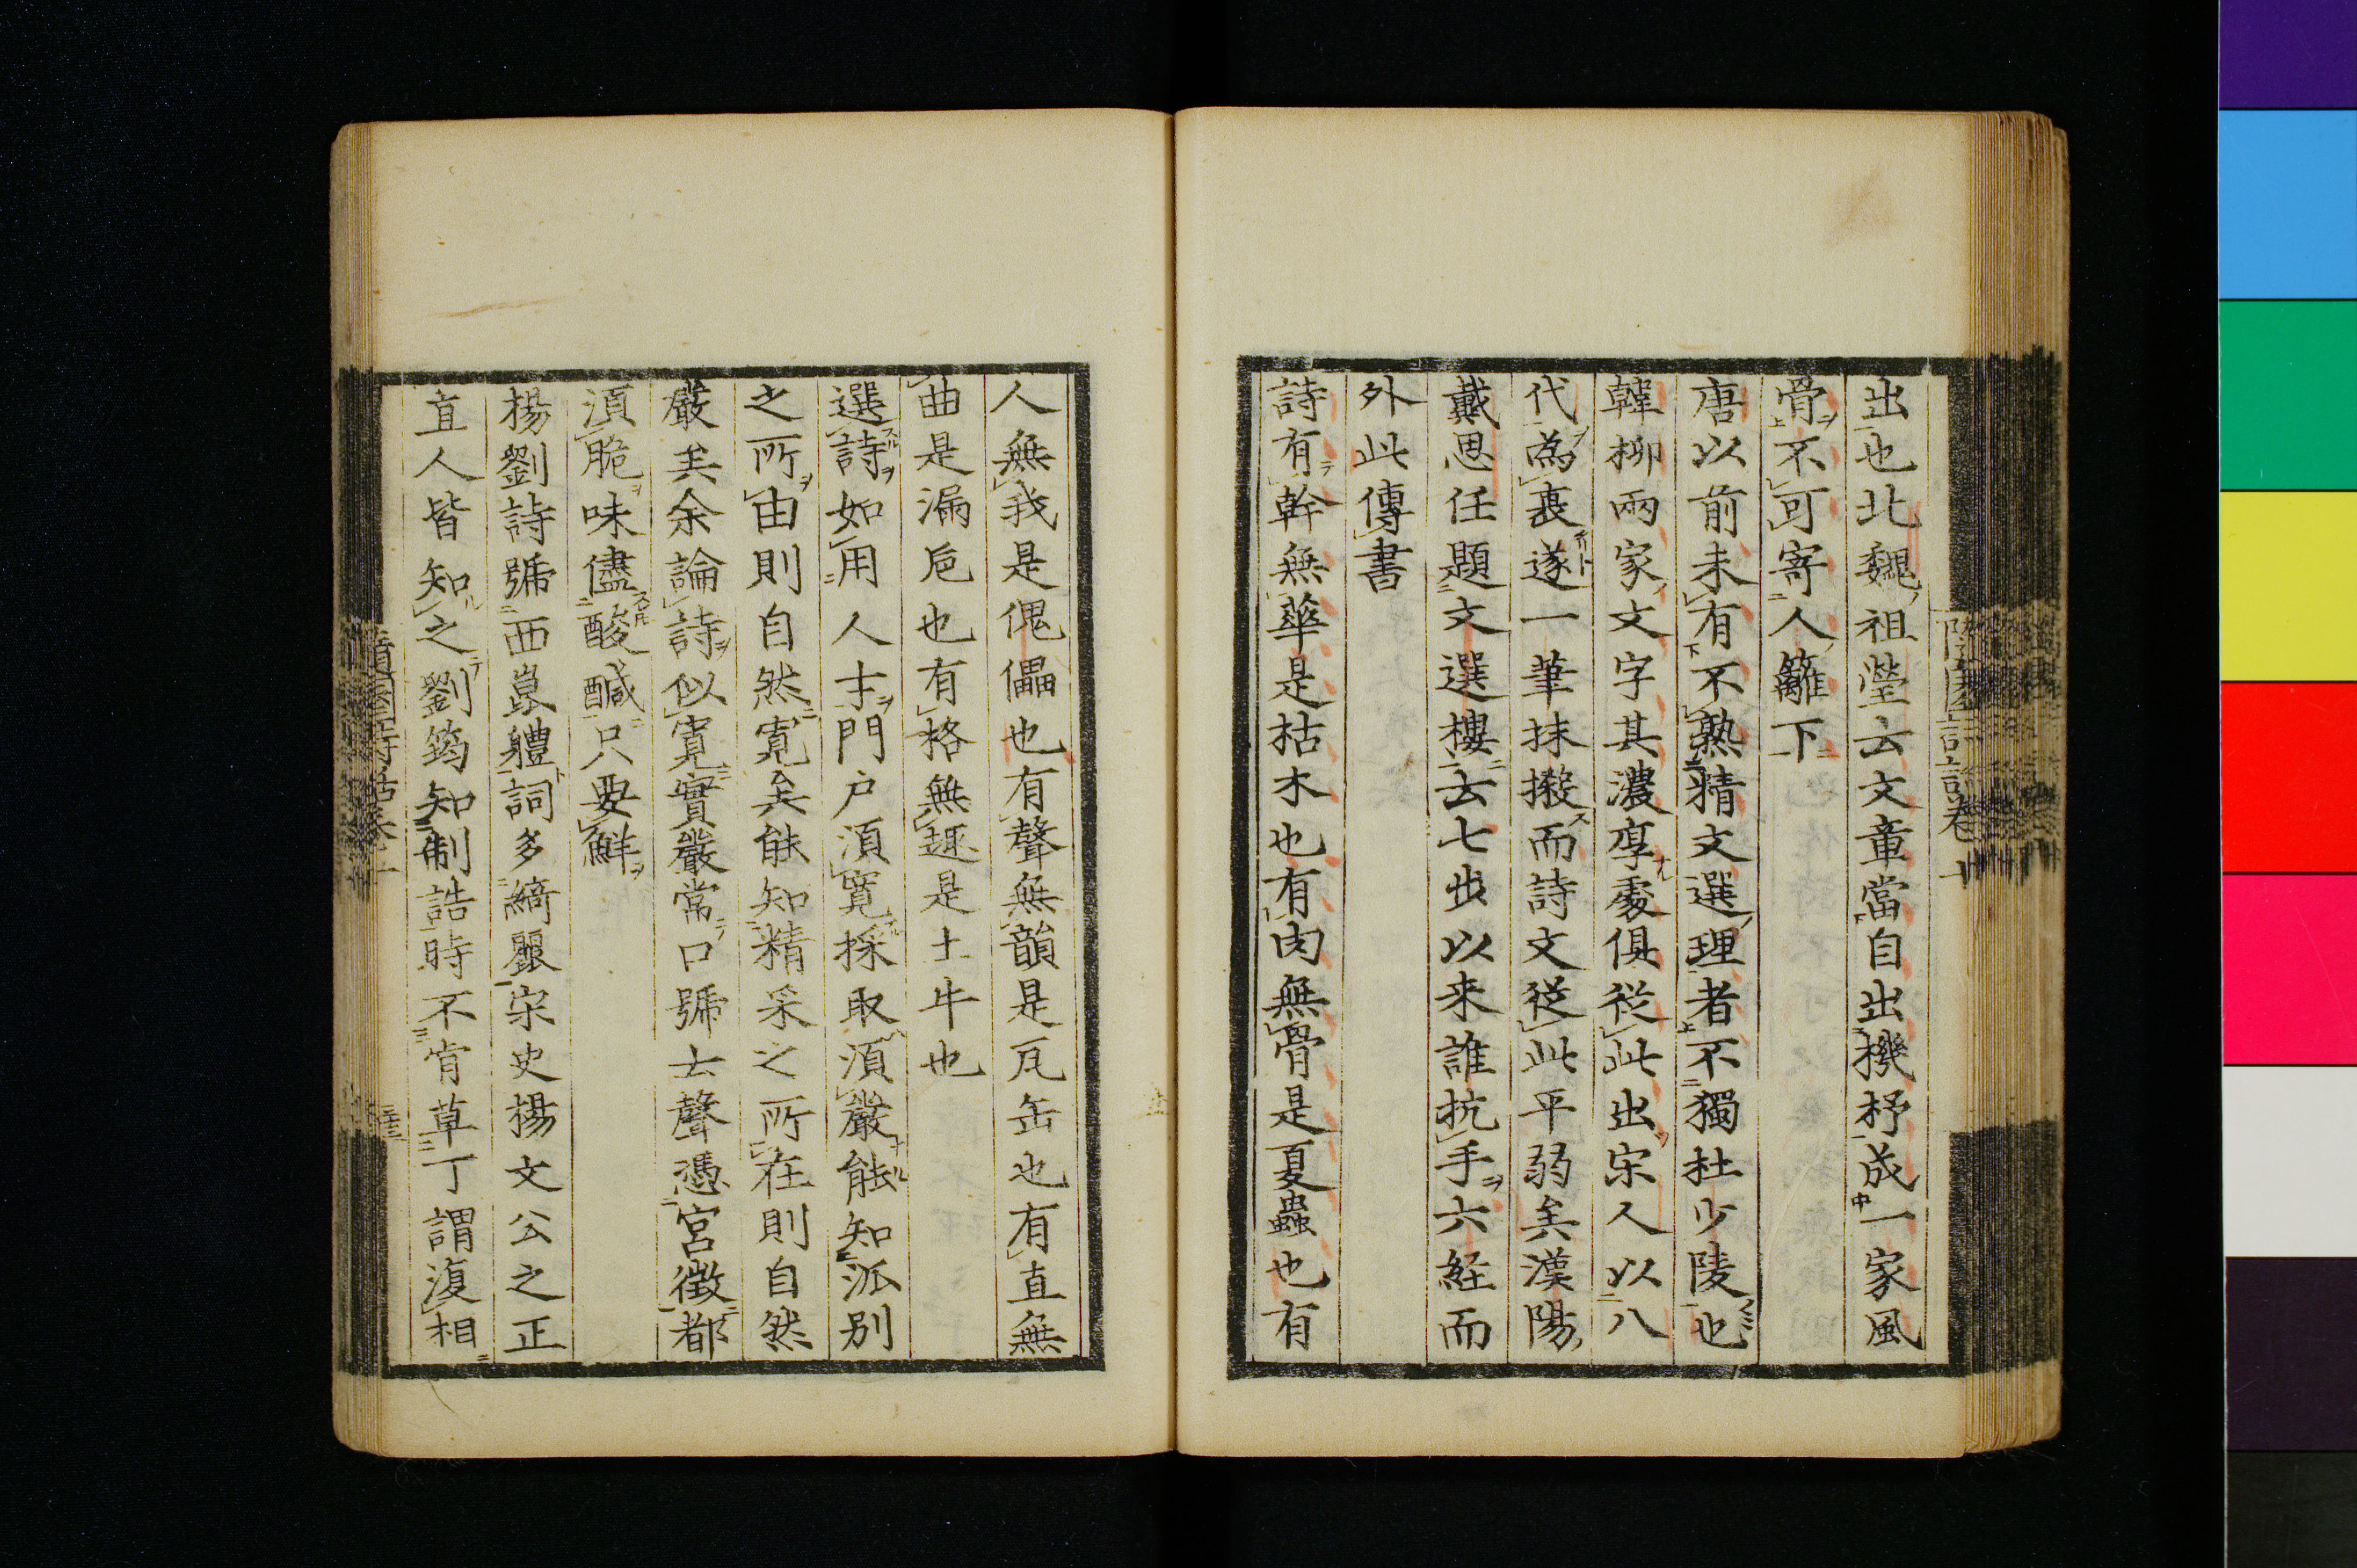 出也北魏祖瑩云文章當自出機杼成一家風
骨不可寄人籬下
唐以前未有不熟精文選理者不獨杜少陵也
韓柳兩家文字其濃厚處俱從此出宋人以八
代為衰遂一筆抹摋而詩文從此平弱矣漢陽
戴思任題文選樓云七步以来誰抗手六経而
外此傳書
詩有幹無華是枯木也有肉無骨是夏蟲也有
人無我是傀儡也有聲無韻是瓦缶也有直無
曲是漏巵也有格無趣是土牛也
選詩如用人士門戶須寛採取須嚴能知派別
之所由則自然寛矣能知精采之所在則自然
嚴矣余論詩似寛實嚴常口號云聲憑宮徵都
須脆味儘酸鹹只要鮮
楊劉詩號西崑體詞多綺麗宋史楊文公之正
直人皆知之劉筠知制誥時不肯草丁謂復相